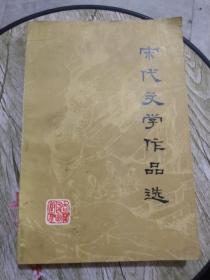 宋代文学作品选